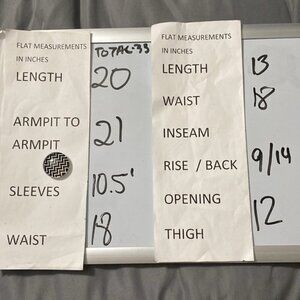 FLAT MEASUREMENTS
IN INCHES
TOTAL-33
LENGTH 20
ARMPIT TO
ARMPIT 21
SLEEVES 10.5'
WAIST 18
FLAT MEASUREMENTS
IN INCHES
LENGTH 13
WAIST 18
INSEAM
RISE / BACK 9/14
OPENING 12
THIGH